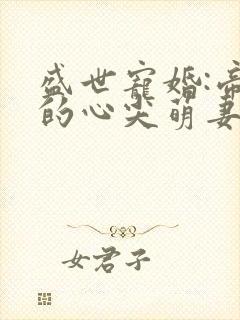 盛世寵婚:帝
的心尖萌妻
女君子